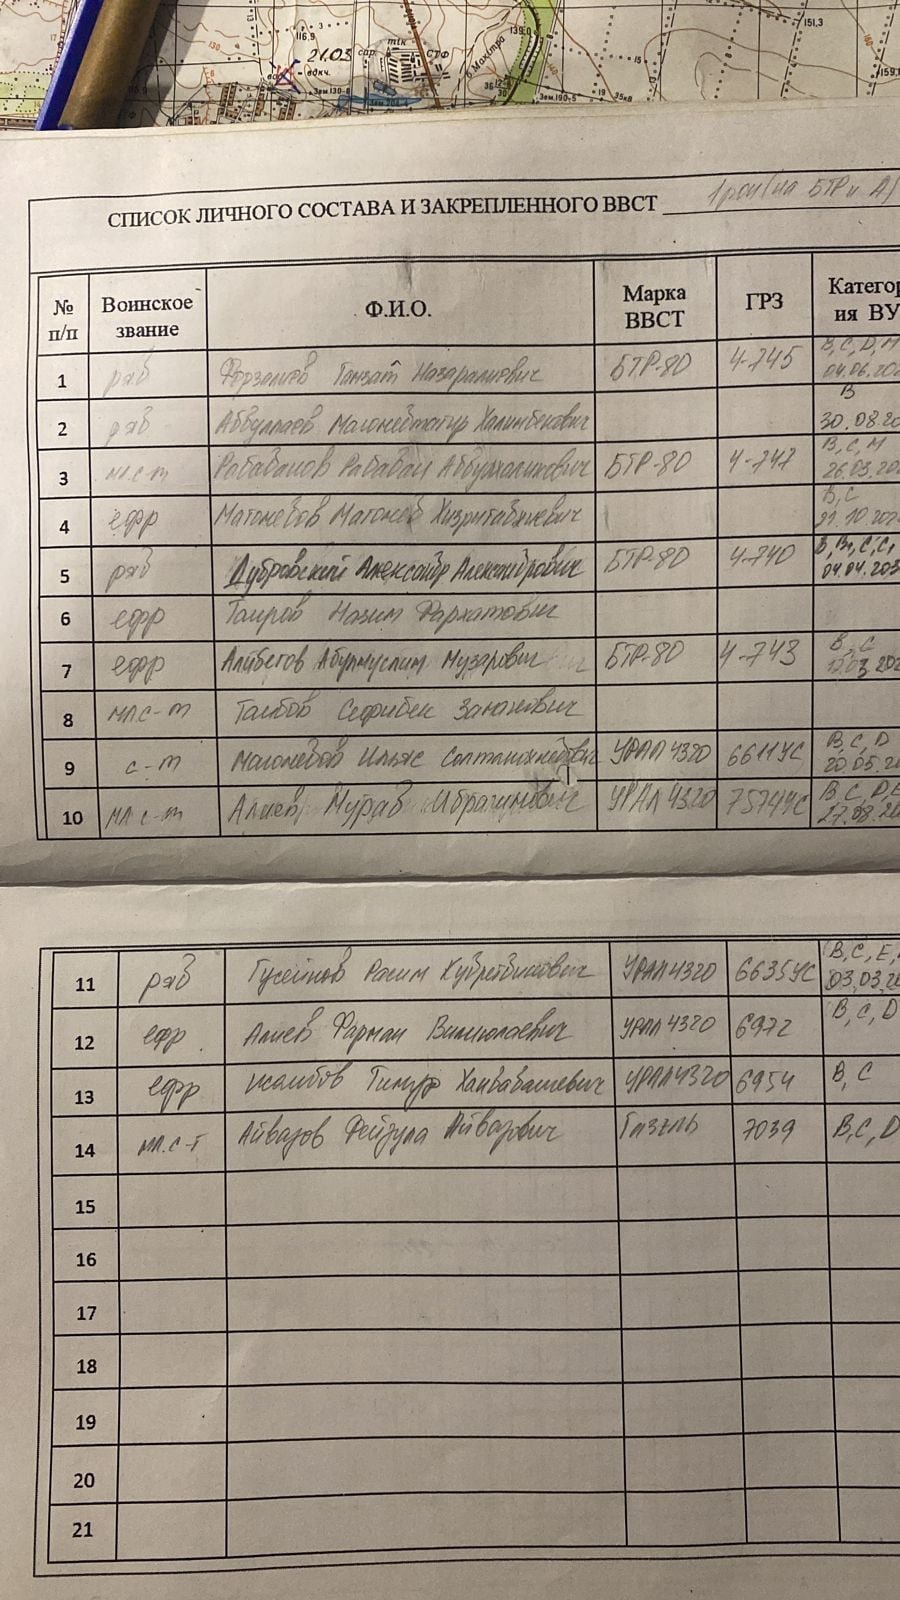 116,9
21.03
сар.
mtк
СТФ
139,0
151,3
159,
вдкч.
Зем.130-8
Зем.190-5
35кв
СПИСОК ЛИЧНОГО СОСТАВА И ЗАКРЕПЛЕННОГО ВВСТ 1 рон (на БТР и А)
№ п/п Воинское звание Ф.И.О. Марка ВВСТ ГРЗ Категор ия ВУ
1 ряд Танзат Назаралиевич БТР-80 4-745 B, C, D, M 04.06.20
2 ряд Абдуллаев Магомедтагир Халимбекович B 30.08.20
3 мл.с-т Рабаданов Рабадан Абдулхаликович БТР-80 4-747 B, C, M 26.03.20
4 ефр Магомедов Магомед B, C 21.10.20
5 ряд Дубровский Александр Александрович БТР-80 4-740 B, B1, C, C1 04.04.203
6 ефр Таиров Назим Фархатович
7 ефр Алибегов Абдулмуслим БТР-80 4-743 B, C 03.20
8 мл.с-т Сефибек
9 с-т Магомедов Ильяс УРАЛ 4320 6611УС B, C, D 20.05.20
10 мл с-т Алиев Мурад Ибрагимович УРАЛ 4320 7574УС B, C, D, E 27.08.20
11 ряд Гусейнов Расим УРАЛ 4320 6635УС B, C, E, 03.03.20
12 ефр Алиев Фарман УРАЛ 4320 6972 B, C, D
13 ефр Тимур УРАЛ 4320 6954 B, C
14 мл.с-т Айвазов Фейзула Айвазович Газель 7039 B, C, D
15
16
17
18
19
20
21